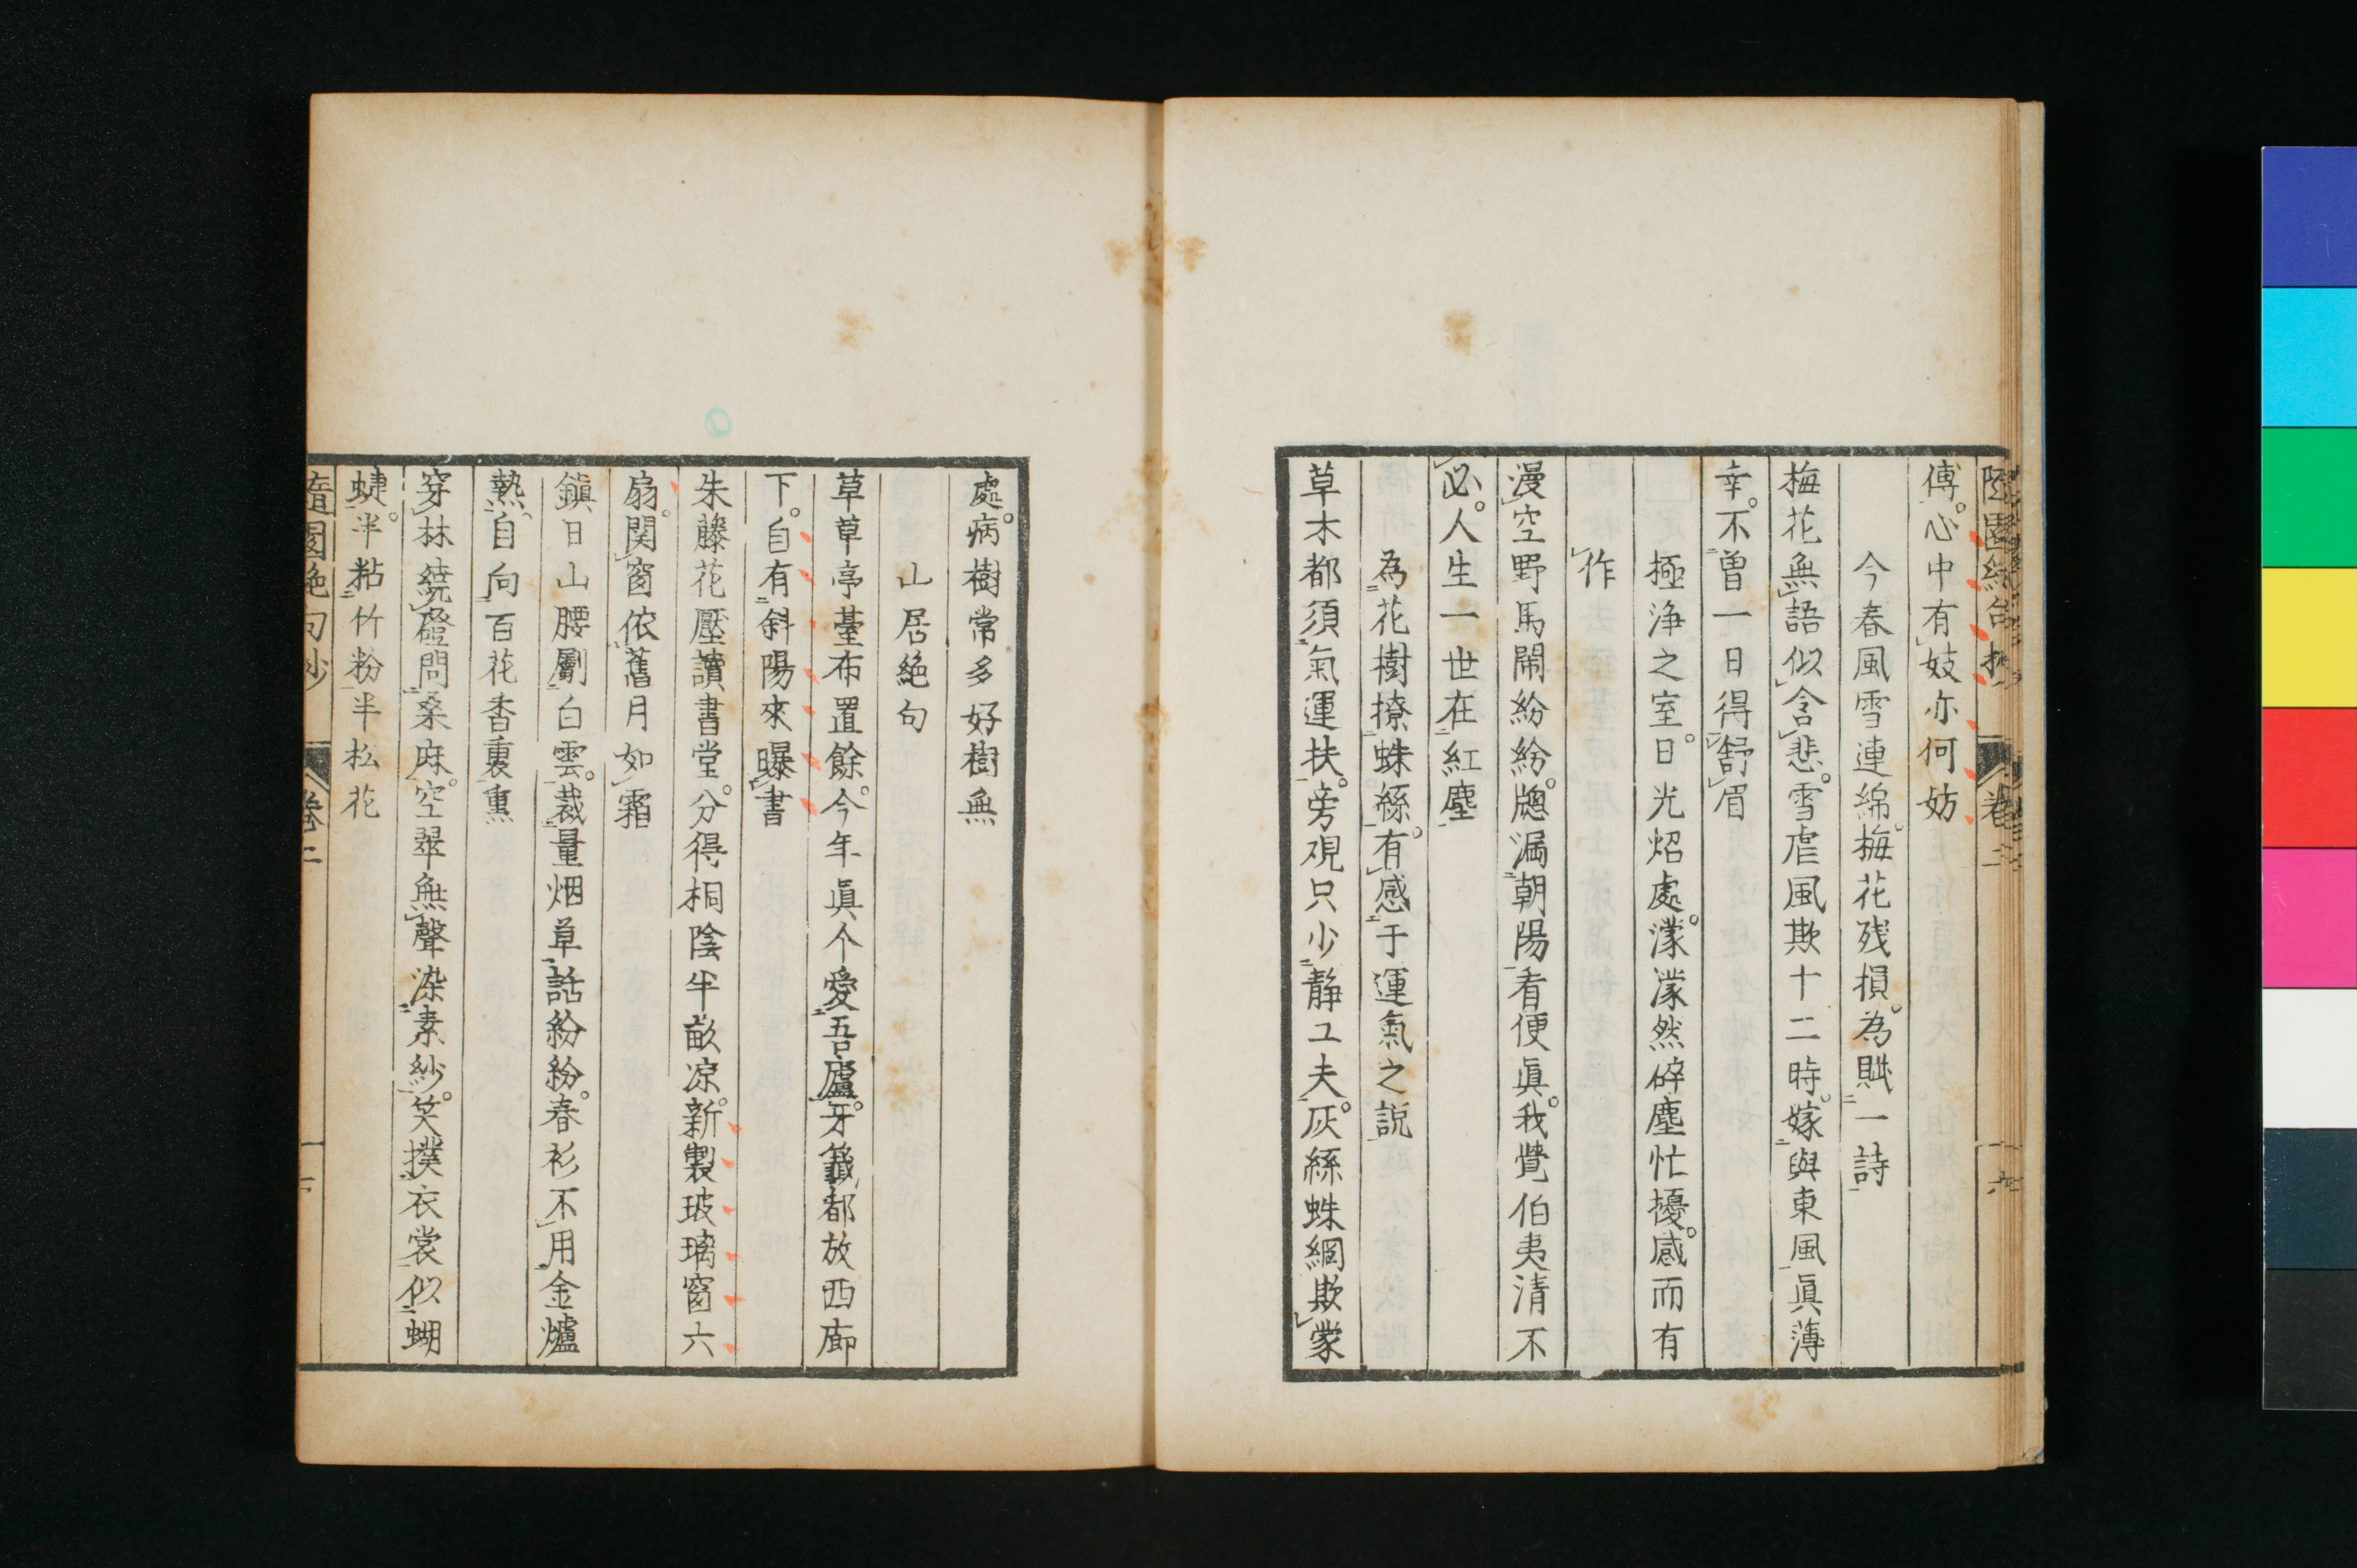 隨園絶句抄 卷二 十六
傳。心中有妓亦何妨
今春風雪連綿。梅花残損。為賦一詩
梅花無語似含悲。雪虐風欺十二時。嫁與東風眞薄
幸。不曽一日得舒眉
極浄之室。日光炤處。濛濛然碎塵忙擾。感而有
作
漫空野馬閙紛紛。牕漏朝陽看便眞。我覺伯夷清不
必。人生一世在紅塵
為花樹撩蛛絲。有感于運氣之説
草木都須氣運扶。旁覌只少静工夫。灰絲蛛網欺蒙
處。病樹常多好樹無
山居絶句
草草亭臺布置餘。今年眞个愛吾廬。牙籤都放西廊
下。自有斜陽來曝書
朱藤花壓讀書堂。分得桐陰半畝凉。新製玻璃窗六
扇。関窗依舊月如霜
鎭日山腰劚白雲。裁量烟草話紛紛。春衫不用金爐
熱。自向百花香裏熏
穿林繞磴問桑麻。空翠無聲染素紗。笑撲衣裳似蝴
蜨。半粘竹粉半松花
隨園絶句抄 卷二